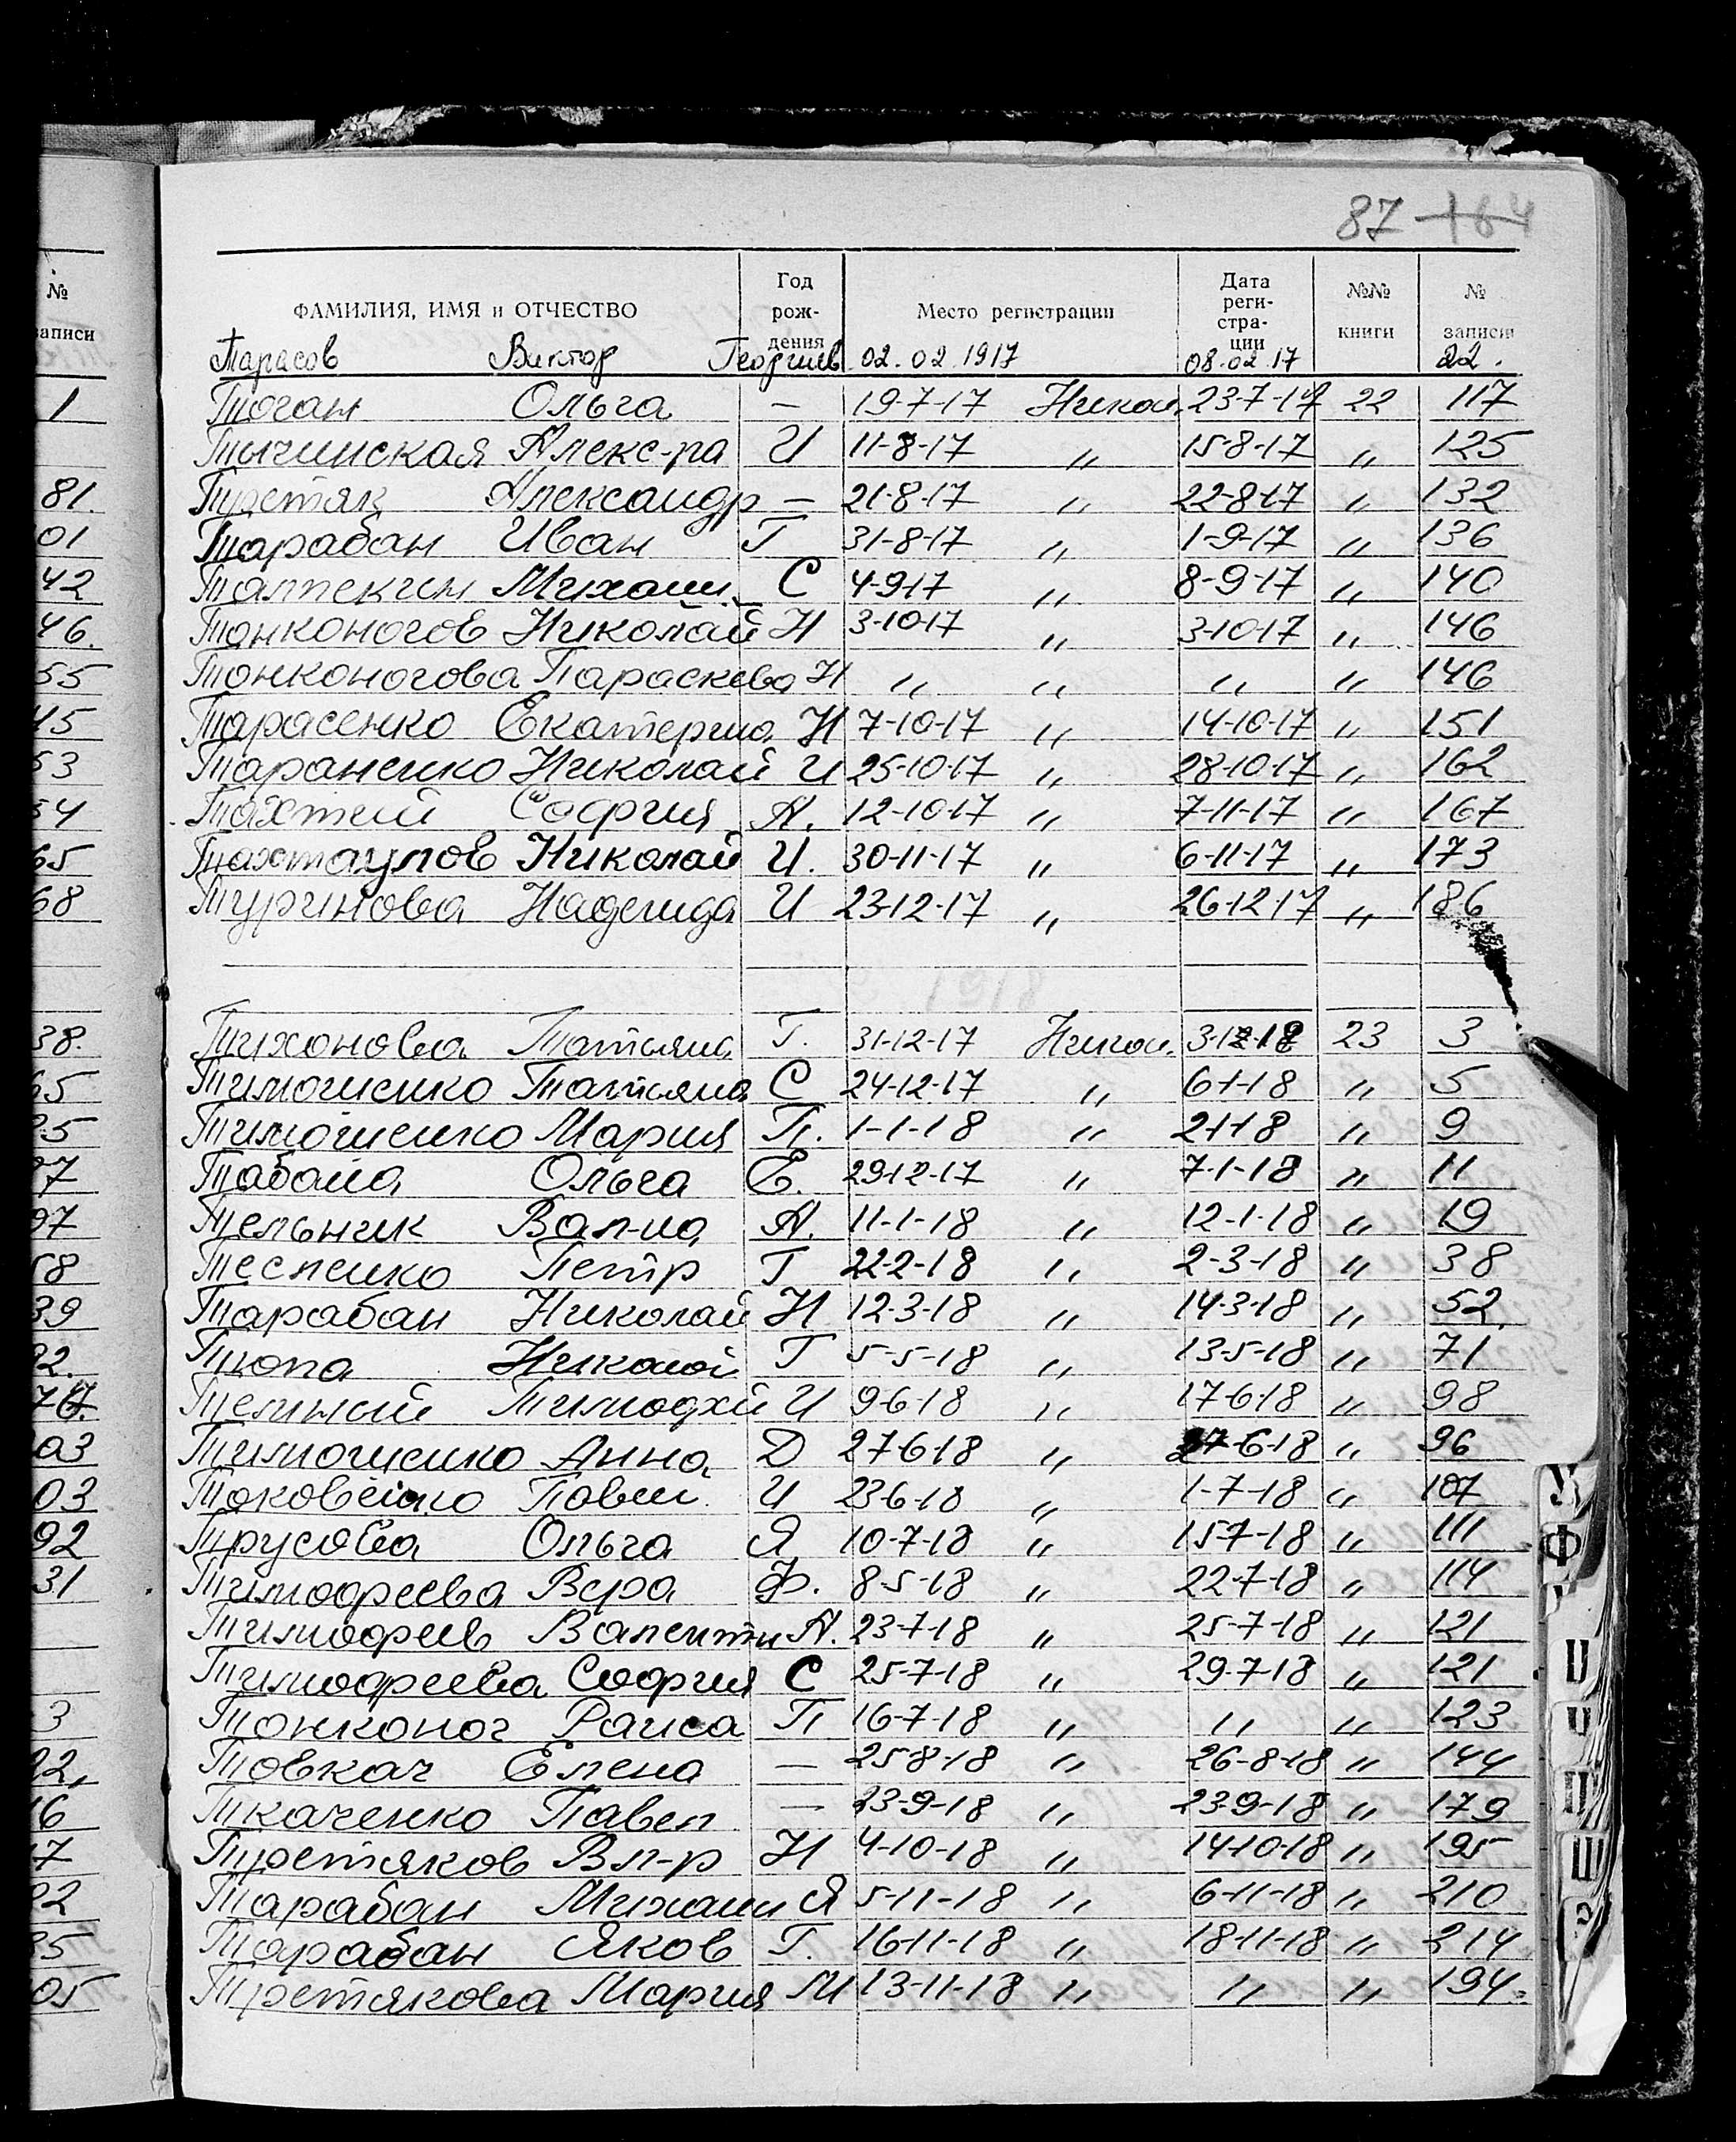 87 164
№
записи
ФАМИЛИЯ, ИМЯ и ОТЧЕСТВО Год рож-дения Место регистрации Дата реги-стра-ции №№ книги № записи
Тарасов Виктор Георгиев 02.02.1917 08.02.17 22.
1 Тоган Ольга — 19-7-17 Никол. 23-7-17 22 117
Тычинская Алекс-ра И 11-8-17 „ 15-8-17 „ 125
81. Третяк Александр — 21-8-17 „ 22-8-17 „ 132
01 Тарабан Иван Г 31-8-17 „ 1-9-17 „ 136
42 Талпекин Михаил С 4-9-17 „ 8-9-17 „ 140
46. Тонконогов Николай Н 3-10-17 „ 3-10-17 „ 146
55 Тонконогова Параскева Н „ „ „ „ 146
45 Тарасенко Екатерина Н 7-10-17 „ 14-10-17 „ 151
53 Тараненко Николай И 25-10-17 „ 28-10-17 „ 162
54 Тахтий София А. 12-10-17 „ 7-11-17 „ 167
65 Тахтаулов Николай И. 30-11-17 „ 6-11-17 „ 173
68 Тургинова Надежда И 23-12-17 „ 26-12-17 „ 186
38. Тихоновна Татьяна Г. 31-12-17 Никол. 3-12-18 23 3
65 Тимошенко Татьяна С 24-12-17 „ 6-1-18 „ 5
25 Тимошенко Мария П. 1-1-18 „ 2-1-18 „ 9
97 Табала Ольга Е. 29-12-17 „ 7-1-18 „ 11
97 Тельник Вал-на А. 11-1-18 „ 12-1-18 „ 19
58 Тесленко Петр Г 22-2-18 „ 2-3-18 „ 38
39 Тарабан Николай Н 12-3-18 „ 14-3-18 „ 52.
92. Тюпа Николай Г 5-5-18 „ 13-5-18 „ 71
Темный Тимофей И 9-6-18 „ 17-6-18 „ 98
03 Тимошенко Анна Д 27-6-18 „ 27-6-18 „ 96
03. Токовенко Павел И 23-6-18 „ 1-7-18 „ 107
92 Трусова Ольга Я 10-7-18 „ 15-7-18 „ 111
31 Тимофеева Вера Ф. 8-5-18 „ 22-7-18 „ 114
Тимофеев Валенти А. 23-7-18 „ 25-7-18 „ 121
Тимофеева София С 25-7-18 „ 29-7-18 „ 121
3 Тонконог Раиса П 16-7-18 „ „ „ 123
22, Товкач Елена — 25-8-18 „ 26-8-18 „ 144
16 Ткаченко Павел — 23-9-18 „ 23-9-18 „ 179
47 Третяков Вл-р Н 4-10-18 „ 14-10-18 „ 195
22 Тарабан Михаил Я 5-11-18 „ 6-11-18 „ 210
35 Тарабан Яков Г. 16-11-18 „ 18-11-18 „ 214
05 Третякова Мария М 13-11-18 „ „ „ 194.
У
Ф
Ц
Ч
Ш